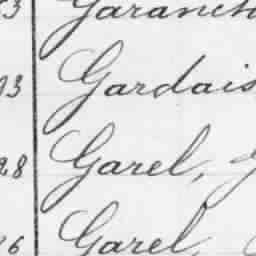 Garanch
13 Gardais
28 Garel,
26 Garel,